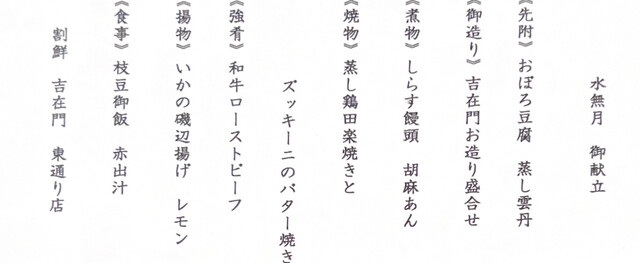 水無月 御献立
《先附》おぼろ豆腐 蒸し雲丹
《御造り》吉在門お造り盛合せ
《煮物》しらす饅頭 胡麻あん
《焼物》蒸し鶏田楽焼きと
ズッキーニのバター焼き
《強肴》和牛ローストビーフ
《揚物》いかの磯辺揚げ レモン
《食事》枝豆御飯 赤出汁
割鮮 吉在門 東通り店